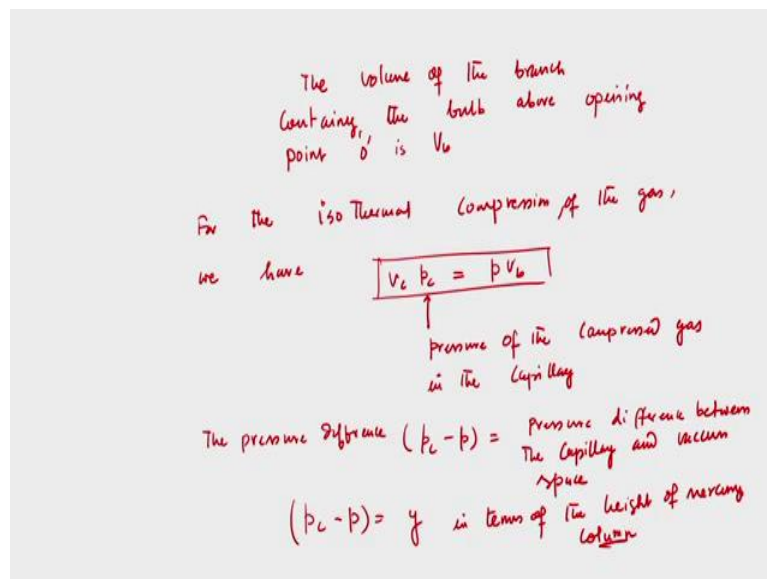 The volume of the branch
Containing, the bulb above opening
point 'O' is V_b
For the isothermal compression of the gas,
we have V_c p_c = p V_b
pressure of the compressed gas
in the Capillary
The pressure difference (p_c - p) = pressure difference between
the Capillary and vaccum
space
(p_c - p) = y in terms of the height of mercury
column